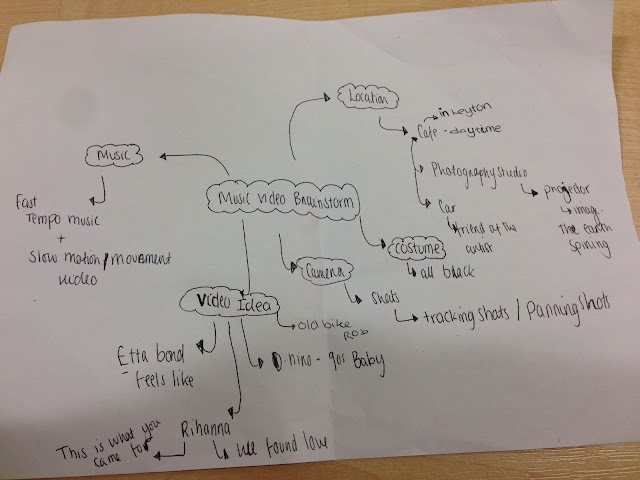 Music Video Brainstorm
Location
in Leyton
Cafe - daytime
Photography studio
projector
image
The earth
spining
Car
friend of the
artist
Costume
all black
Camera
Shots
tracking shots / Panning shots
Video Idea
old bike
ROD
nino - 90s Baby
Rihanna
We found love
This is what you
came for
Etta bond
- feels like
Music
Fast
Tempo music
+
Slow motion / movement
video